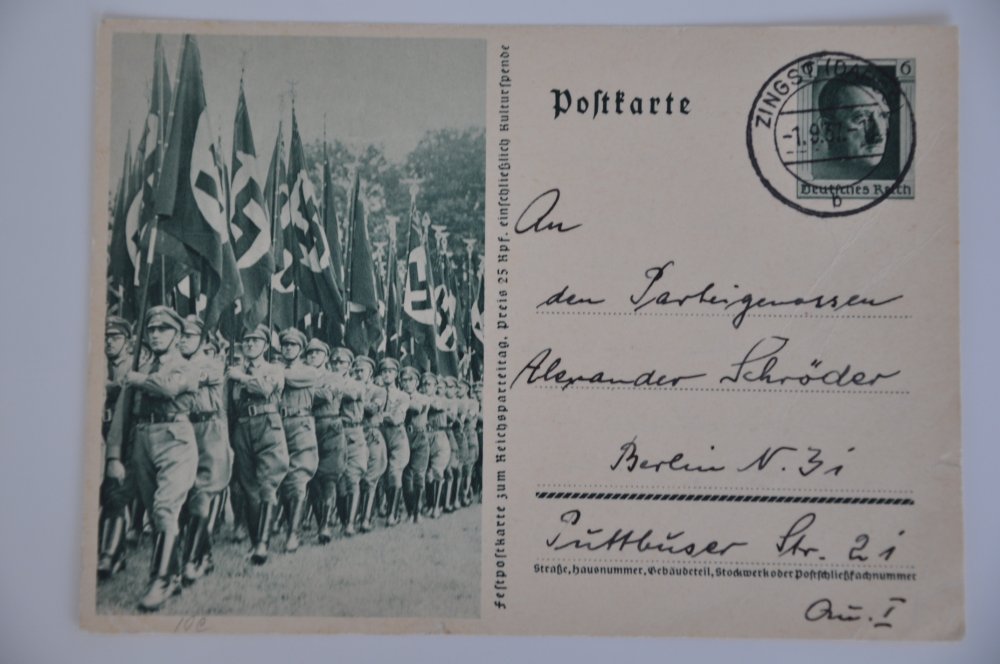 Festpostkarte zum Reichsparteitag. Preis 25 Rpf. einschließlich Kulturspende
Postkarte
6
ZINGST
-1.9.37.-
b
Deutsches Reich
An
den Parteigenossen
Alexander Schröder
Berlin N. 31
Puttbuser Str. 21
Straße, Hausnummer, Gebäudeteil, Stockwerk oder Postschließfachnummer
Qu. I